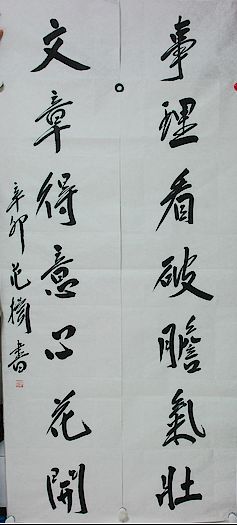 事理看破膽氣壯
文章得意心花開
辛卯 范樹書